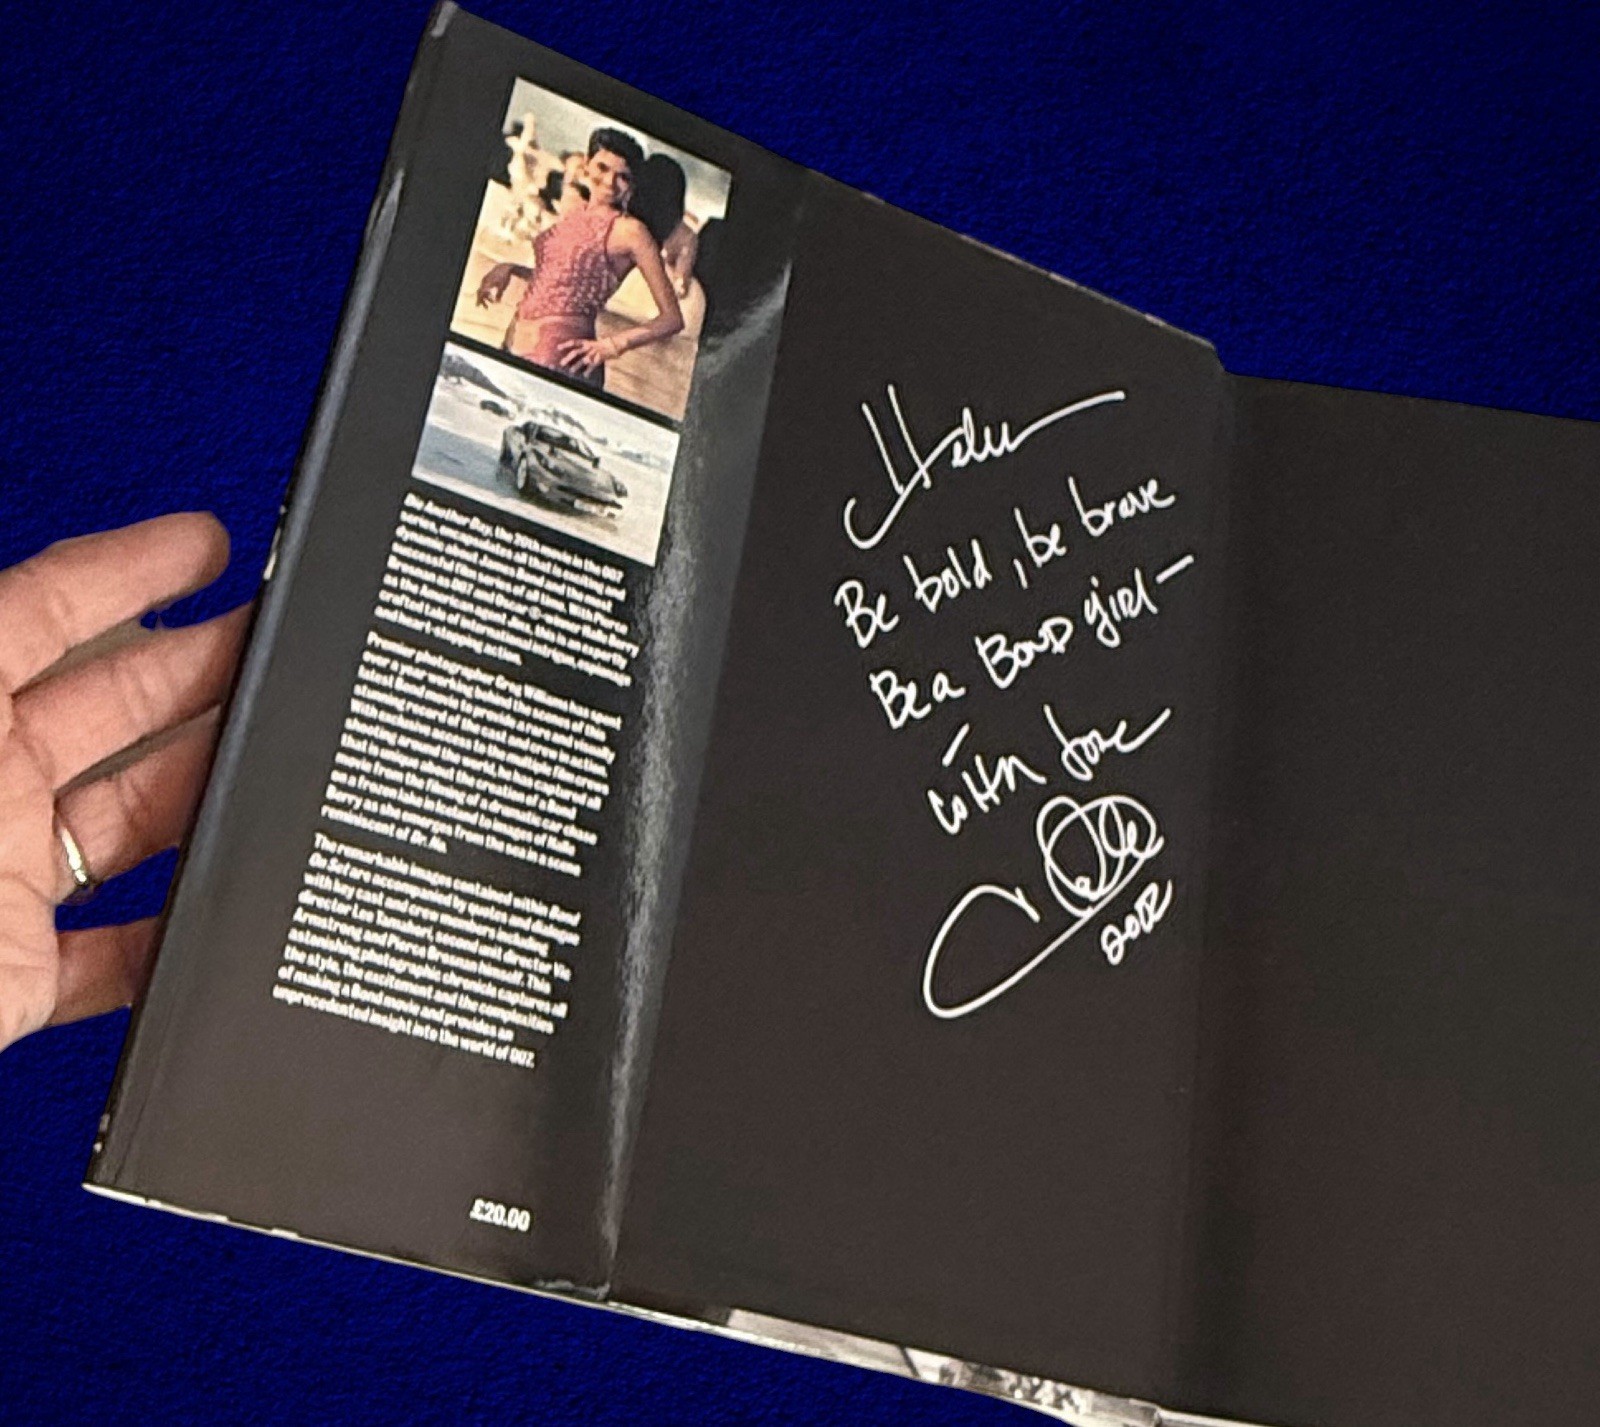 Die Another Day, the 20th movie in the 007
series, encapsulates all that is exciting and
dynamic about James Bond and the most
successful film series of all time. With Pierce
Brosnan as 007 and Oscar®-winner Halle Berry
as the American agent Jinx, this is an expertly
crafted tale of international intrigue, espionage
and heart-stopping action.
Premier photographer Greg Williams has spent
over a year working behind the scenes of the
latest Bond movie to provide a rare and visually
stunning record of the cast and crew in action.
With exclusive access to the multiple film crews
shooting around the world, he has captured all
that is unique about the creation of a Bond
movie from the filming of a dramatic car chase
on a frozen lake in Iceland to images of Halle
Berry as she emerges from the sea in a scene
reminiscent of Dr. No.
The remarkable images contained within Bond
On Set are accompanied by quotes and dialogue
with key cast and crew members including
director Lee Tamahori, second unit director Vic
Armstrong and Pierce Brosnan himself. This
astonishing photographic chronicle captures all
the style, the excitement and the complexities
of making a Bond movie and provides an
unprecedented insight into the world of 007.
£20.00
Helen
Be bold, be brave
Be a BonD girl-
love
2002